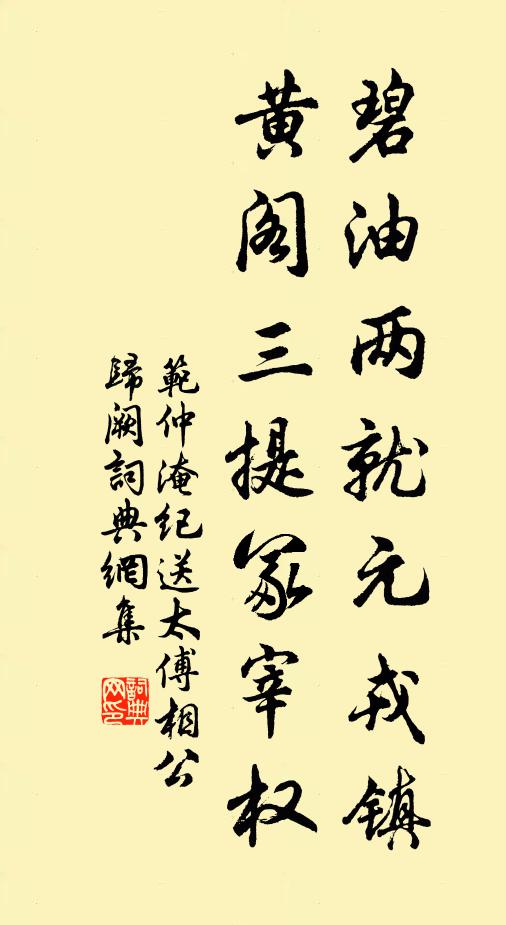 碧油两就元戎镇
黄阁三提冢宰权
範仲淹纪送太傅相公
歸阙詞典網集
詞典网印